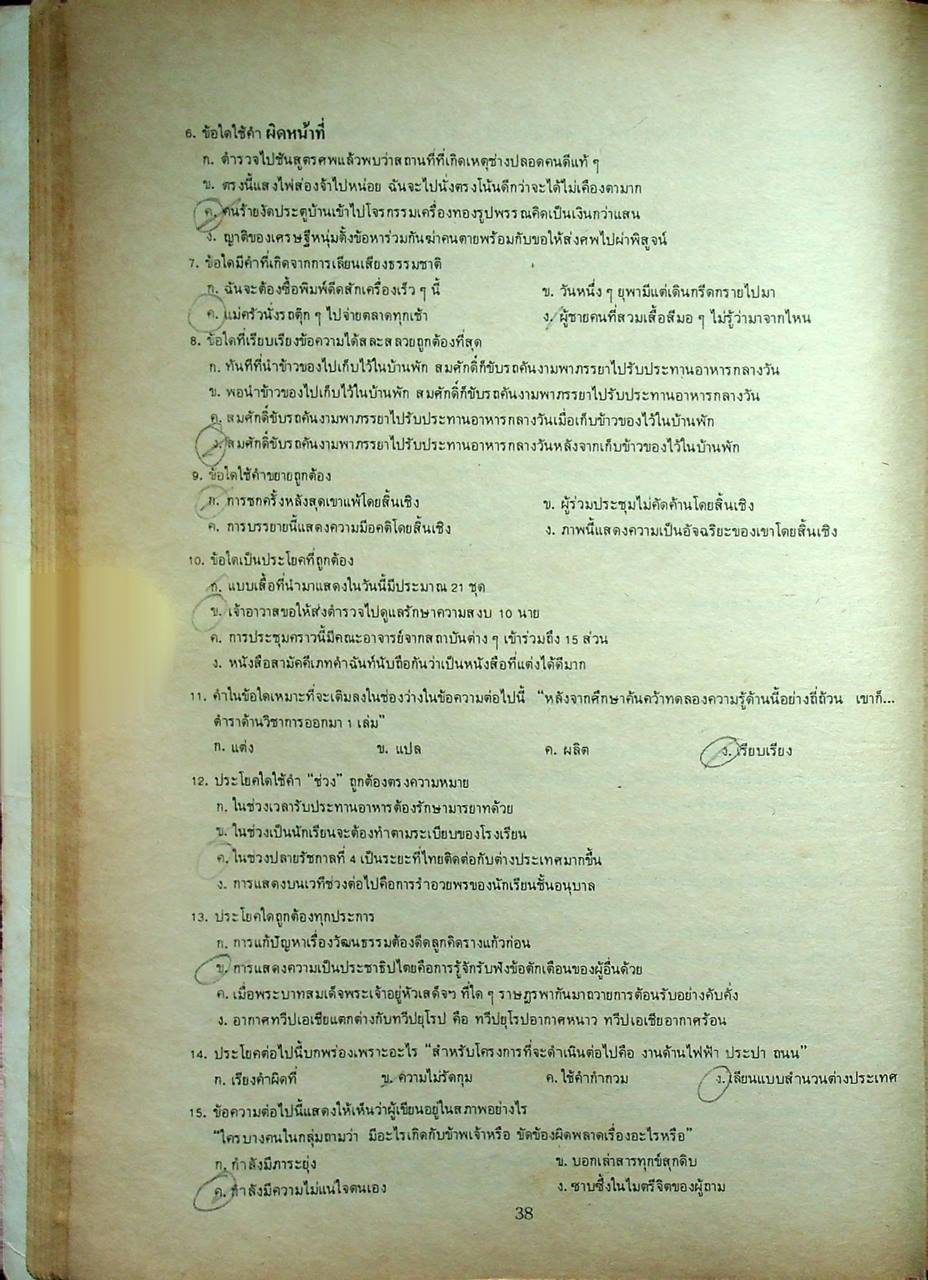 6. ข้อใดใช้คำ ผิดหน้าที่
ก. ตำรวจไปชันสูตรศพแล้วพบว่าสถานที่ที่เกิดเหตุช่างปลอดคนดีแท้ ๆ
ข. ตรงนี้แสงไฟส่องจ้าไปหน่อย ฉันจะไปนั่งตรงโน้นดีกว่าจะได้ไม่เคืองตามาก
ค. คนร้ายงัดประตูบ้านเข้าไปโจรกรรมเครื่องทองรูปพรรณคิดเป็นเงินกว่าแสน
ง. ญาติของเศรษฐีหนุ่มตั้งข้อหาร่วมกันฆ่าคนตายพร้อมกับขอให้ส่งศพไปผ่าพิสูจน์
7. ข้อใดมีคำที่เกิดจากการเลียนเสียงธรรมชาติ
ก. ฉันจะต้องซื้อพิมพ์ดีดสักเครื่องเร็ว ๆ นี้ ข. วันหนึ่ง ๆ ยุพามีแต่เดินกรีดกรายไปมา
ค. แม่ครัวนั่งรถตุ๊ก ๆ ไปจ่ายตลาดทุกเช้า ง. ผู้ชายคนที่สวมเสื้อสีมอ ๆ ไม่รู้ว่ามาจากไหน
8. ข้อใดที่เรียบเรียงข้อความได้สละสลวยถูกต้องที่สุด
ก. ทันทีที่นำข้าวของไปเก็บไว้ในบ้านพัก สมศักดิ์ก็ขับรถคันงามพาภรรยาไปรับประทานอาหารกลางวัน
ข. พอนำข้าวของไปเก็บไว้ในบ้านพัก สมศักดิ์ก็ขับรถคันงามพาภรรยาไปรับประทานอาหารกลางวัน
ค. สมศักดิ์ขับรถคันงามพาภรรยาไปรับประทานอาหารกลางวันเมื่อเก็บข้าวของไว้ในบ้านพัก
ง. สมศักดิ์ขับรถคันงามพาภรรยาไปรับประทานอาหารกลางวันหลังจากเก็บข้าวของไว้ในบ้านพัก
9. ข้อใดใช้คำขยายถูกต้อง
ก. การชกครั้งหลังสุดเขาแพ้โดยสิ้นเชิง ข. ผู้ร่วมประชุมไม่คัดค้านโดยสิ้นเชิง
ค. การบรรยายนี้แสดงความมีอคติโดยสิ้นเชิง ง. ภาพนี้แสดงความเป็นอัจฉริยะของเขาโดยสิ้นเชิง
10. ข้อใดเป็นประโยคที่ถูกต้อง
ก. แบบเสื้อที่นำมาแสดงในวันนี้มีประมาณ 21 ชุด
ข. เจ้าอาวาสขอให้ส่งตำรวจไปดูแลรักษาความสงบ 10 นาย
ค. การประชุมคราวนี้มีคณะอาจารย์จากสถาบันต่าง ๆ เข้าร่วมถึง 15 ส่วน
ง. หนังสือสามัคคีเภทคำฉันท์นับถือกันว่าเป็นหนังสือที่แต่งได้ดีมาก
11. คำในข้อใดเหมาะที่จะเติมลงในช่องว่างในข้อความต่อไปนี้ “หลังจากศึกษาค้นคว้าทดลองความรู้ด้านนี้อย่างถี่ถ้วน เขาก็...
ตำราด้านวิชาการออกมา 1 เล่ม”
ก. แต่ง ข. แปล ค. ผลิต ง. เรียบเรียง
12. ประโยคใดใช้คำ “ช่วง” ถูกต้องตรงความหมาย
ก. ในช่วงเวลารับประทานอาหารต้องรักษามารยาทด้วย
ข. ในช่วงเป็นนักเรียนจะต้องทำตามระเบียบของโรงเรียน
ค. ในช่วงปลายรัชกาลที่ 4 เป็นระยะที่ไทยติดต่อกับต่างประเทศมากขึ้น
ง. การแสดงบนเวทีช่วงต่อไปคือการรำอวยพรของนักเรียนชั้นอนุบาล
13. ประโยคใดถูกต้องทุกประการ
ก. การแก้ปัญหาเรื่องวัฒนธรรมต้องดีดลูกคิดรางแก้วก่อน
ข. การแสดงความเป็นประชาธิปไตยคือการรู้จักรับฟังข้อตักเตือนของผู้อื่นด้วย
ค. เมื่อพระบาทสมเด็จพระเจ้าอยู่หัวเสด็จฯ ที่ใด ๆ ราษฎรพากันมาถวายการต้อนรับอย่างคับคั่ง
ง. อากาศทวีปเอเชียแตกต่างกับทวีปยุโรป คือ ทวีปยุโรปอากาศหนาว ทวีปเอเชียอากาศร้อน
14. ประโยคต่อไปนี้บกพร่องเพราะอะไร “สำหรับโครงการที่จะดำเนินต่อไปคือ งานด้านไฟฟ้า ประปา ถนน”
ก. เรียงคำผิดที่ ข. ความไม่รัดกุม ค. ใช้คำกำกวม ง. เลียนแบบสำนวนต่างประเทศ
15. ข้อความต่อไปนี้แสดงให้เห็นว่าผู้เขียนอยู่ในสภาพอย่างไร
“ใครบางคนในกลุ่มถามว่า มีอะไรเกิดกับข้าพเจ้าหรือ ขัดข้องผิดพลาดเรื่องอะไรหรือ”
ก. กำลังมีภาระยุ่ง ข. บอกเล่าสารทุกข์สุกดิบ
ค. กำลังมีความไม่แน่ใจตนเอง ง. ซาบซึ้งในไมตรีจิตของผู้ถาม
38